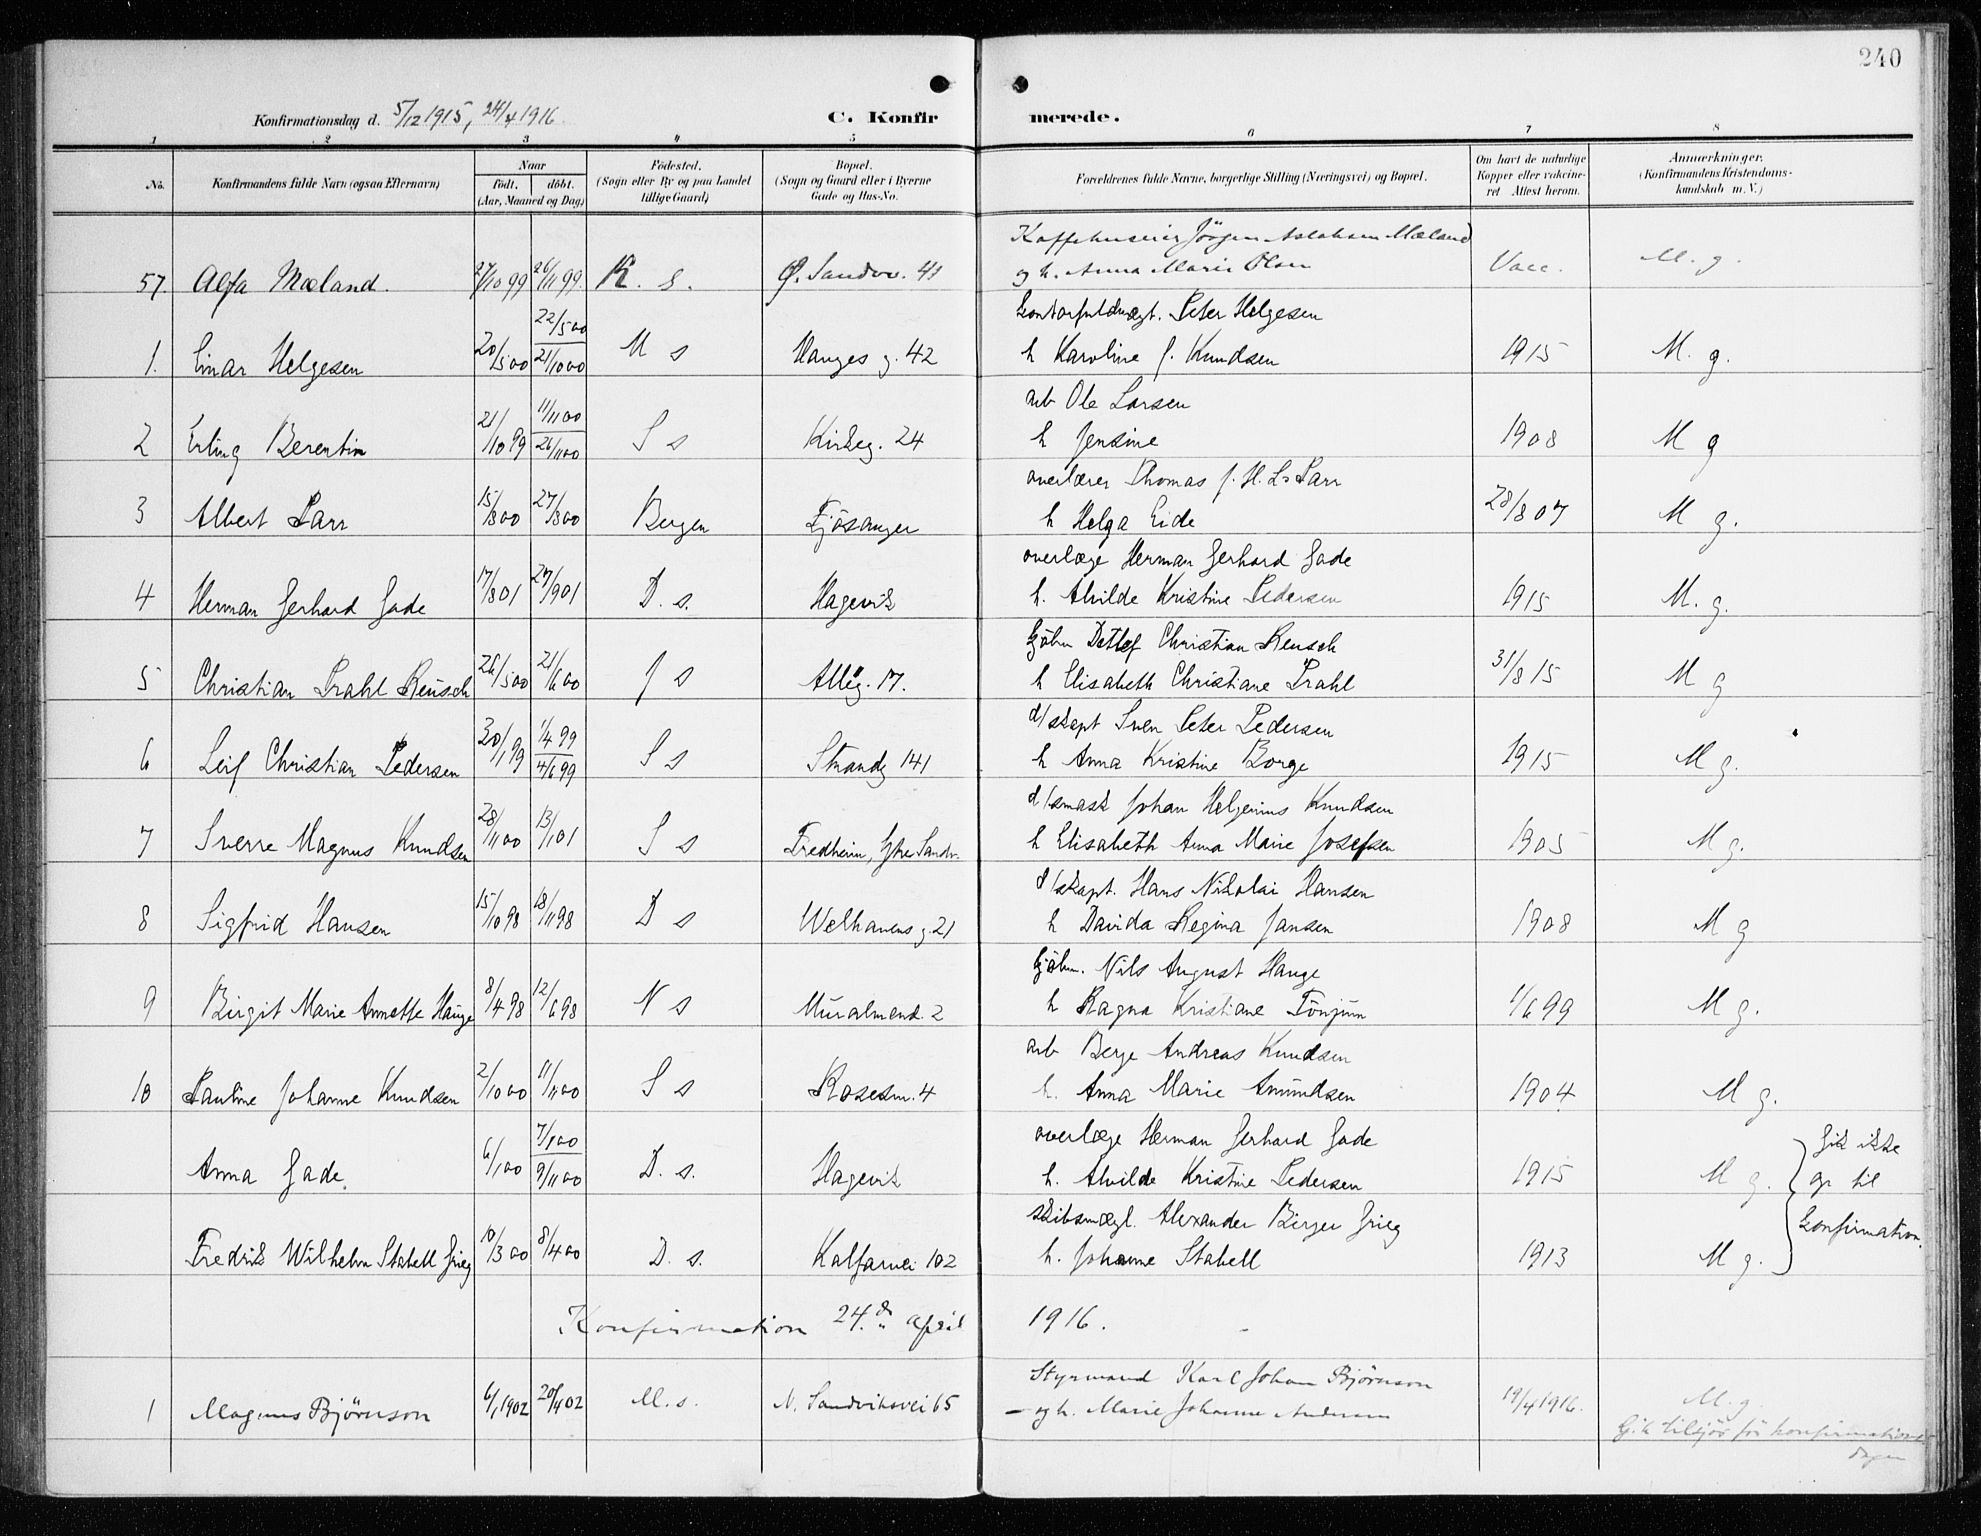 240
Konfirmationsdag d. 5/12 1915, 24/4 1916.
C. Konfirmerede.
1 2 3 4 5 6 7 8
No. Konfirmandens fulde Navn (ogsaa Efternavn) Naar født. døbt. (Aar, Maaned og Dag) Fødested. (Sogn eller By og paa Landet tillige Gaard) Bopæl. (Sogn og Gaard eller i Byerne Gade og Hus-No. Forældrenes fulde Navne, borgerlige Stilling (Næringsvei) og Bopæl. Om havt de naturlige Kopper eller vakcineret Attest herom. Anmærkninger. (Konfirmandens Kristendomskundskab m. V.)
Jörgen Aslaksen Mæland
57. Alfa Mæland. 27/10 99 26/11 99. K. s. Ø. Sandvv. 41 og h. Anna Marie Olsen Vacc. M. g.
22/5 00 Kontorfuldmægt. Peter Helgesen
1. Einar Helgesen 20/5 00 21/10 00 M s Hauges g. 42 h Karoline f. Knudsen 1915 M. g.
11/11 00 arb Ole Larsen
2 Erling Berentin 21/10 99 26/11 00 S s Kirkeg. 24 h Jensine 1908 M g
overlærer Thomas J. H. L. Parr
3 Albert Parr 15/8 00 27/8 00 Bergen Fjösanger h Helga Eide 28/8 07 M g.
overlæge Herman Gerhard Gade
4 Herman Gerhard Gade 17/8 01 27/9 01 D. s. Hagevik h. Alvilde Kristine Pedersen 1915 M. g.
Kjöbm Detlef Christian Reusch
5 Christian Prahl Reusch 26/5 00 21/6 00 J s Alleg. 17. h Elisabeth Christiane Prahl 31/8 15 M g
1/4 99 d/skapt Sven Peter Pedersen
6 Leif Christian Pedersen 30/1 99 4/6 99 S s Strandg 141 h Anna Kristine Borge 1915 M g.
d/smask Johan Helgerius Knudsen
7 Sverre Magnus Knudsen 28/11 00 13/1 01 S s Fredheim, Ytre Sandv. h Elisabeth Anna Marie Josefsen 1905 M g.
d/skapt. Hans Nikolai Hansen
8 Sigfrid Hansen 15/10 98 18/11 98 D s Welhavens g. 21 h Davida Regina Jansen 1908 M g
Kjöbm. Nils August Hauge
9 Birgit Marie Annette Hauge 8/4 98 12/6 98 N s Muralmend. 2 h Ragna Kristiane Tönjum 1/6 99 M g.
arb Berge Andreas Knudsen
10 Pauline Johanne Knudsen 2/10 00 11/11 00 S s Rosesm. 4 h. Anna Marie Amundsen 1904 M g.
7/1 00 overlæge Herman Gerhard Gade
Anna Gade. 6/1 00 9/11 00 D. s. Hagevik h. Alvilde Kristine Pedersen 1915 M g. Gik ikke op til Konfirmation.
skibsmægl. Alexander Birger Grieg
Fredrik Wilhelm Stabell Grieg 10/3 00 8/4 00 D. s. Kalfarvei 102 h. Johanne Stabell 1913 M g.
Konfirmation 24.de april 1916.
Styrmand Karl Johan Bjørnson
1 Magnus Bjørnson 6/1 1902 20/4 02 M. s. N. Sandviksvei 65 og h. Marie Johanne Andersen 19/4 1916. M. g.
Gik för konfirmations
dagen